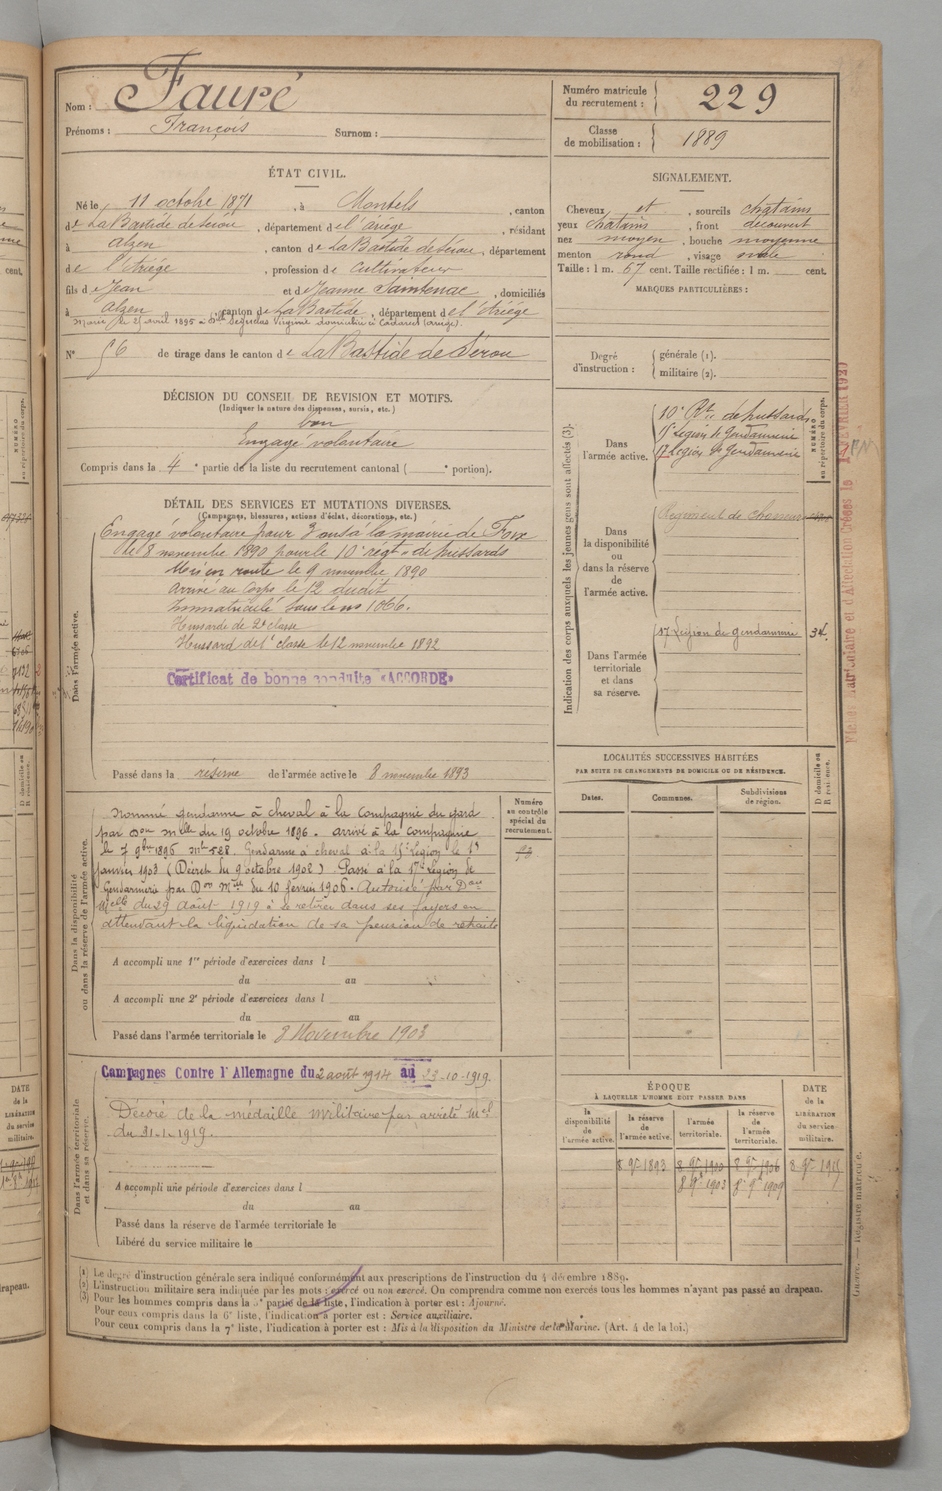 Nom : Fauré
Prénoms : François Surnom :
Numéro matricule du recrutement : 229
Classe de mobilisation : 1889
ÉTAT CIVIL.
Né le 11 octobre 1871, à Montels, canton
de La Bastide de Sérou, département de l'Ariège, résidant
à Alzen, canton de La Bastide de Sérou, département
de l'Ariège, profession de cultivateur
fils de Jean et de Jeanne Saintenac, domiciliés
à Alzen, canton de La Bastide, département de l'Ariège
Marié le 25 avril 1895 à Dlle Seguelas Virginie domiciliée à Cadarcet (Ariège).
N° 56 de tirage dans le canton de La Bastide de Sérou
SIGNALEMENT.
Cheveux et, sourcils chatains
yeux chatains, front découvert
nez moyen, bouche moyenne
menton rond, visage ovale
Taille : 1 m. 67 cent. Taille rectifiée : 1 m. cent.
MARQUES PARTICULIÈRES :
Degré d'instruction : générale (1).
militaire (2).
DÉCISION DU CONSEIL DE REVISION ET MOTIFS.
(Indiquer la nature des dispenses, sursis, etc.)
bon
Engagé volontaire
Compris dans la 4e partie de la liste du recrutement cantonal ( e portion).
DÉTAIL DES SERVICES ET MUTATIONS DIVERSES.
(Campagnes, blessures, actions d'éclat, décorations, etc.)
Dans l'armée active.
Engagé volontaire pour 3 ans à la mairie de Foix
le 8 novembre 1890 pour le 10e régt de hussards
Mis en route le 9 novembre 1890
Arrivé au Corps le 12 dudit
Immatriculé sous le no 1066.
Hussard de 2e classe
Hussard de 1e classe le 12 novembre 1892
Certificat de bonne conduite «ACCORDÉ»
Passé dans la réserve de l'armée active le 8 novembre 1893
Indication des corps auxquels les jeunes gens sont affectés (3).
Dans l'armée active.
10e Rt de hussards
15e Légion de Gendarmerie
17 Légion de Gendarmerie
NUMÉRO au répertoire du corps.
Dans la disponibilité ou dans la réserve de l'armée active.
Régiment de Chasseurs
Dans l'armée territoriale et dans sa réserve.
17 Légion de gendarmerie 34.
Fiches Matriculaire et d'Affectation Créées le FÉVRIER 1920
LOCALITÉS SUCCESSIVES HABITÉES
PAR SUITE DE CHANGEMENTS DE DOMICILE OU DE RÉSIDENCE.
Dates. Communes. Subdivisions de région. D domicile ou R résidence.
Dans la disponibilité ou dans la réserve de l'armée active.
Numéro au contrôle spécial du recrutement.
93
Nommé gendarme à cheval à la Compagnie du Gard
par Don Mlle du 19 octobre 1896. Arrivé à la Compagnie
le 7 9bre 1896 Mle 588. Gendarme à cheval à la 15e Légion le 1er
Janvier 1903 (Décret du 9 octobre 1902) Passé à la 17e Légion de
Gendarmerie par Don Mlle du 10 février 1906. Autorisé par Don
Melle du 29 Août 1919 à se retirer dans ses foyers en
attendant la liquidation de sa pension de retraite
A accompli une 1re période d'exercices dans l
du au
A accompli une 2e période d'exercices dans l
du au
Passé dans l'armée territoriale le 8 Novembre 1903
Dans l'armée territoriale et dans sa réserve.
Campagnes Contre l'Allemagne du 2 août 1914 au 23-10-1919
Décoré de la médaille militaire par arrêté Mel
du 31-1-1919.
A accompli une période d'exercices dans l
du au
Passé dans la réserve de l'armée territoriale le
Libéré du service militaire le
ÉPOQUE
À LAQUELLE L'HOMME DOIT PASSER DANS
la disponibilité de l'armée active. la réserve de l'armée active. l'armée territoriale. la réserve de l'armée territoriale. DATE de la LIBÉRATION du service militaire.
8 9e 1893 8 9e 1900 8 9e 1906 8 9e 1915
8 9e 1903 8 9e 1909
(1) Le degré d'instruction générale sera indiqué conformément aux prescriptions de l'instruction du 4 décembre 1889.
(2) L'instruction militaire sera indiquée par les mots : exercé ou non exercé. On comprendra comme non exercés tous les hommes n'ayant pas passé au drapeau.
(3) Pour les hommes compris dans la 5e partie de la liste, l'indication à porter est : Ajourné.
Pour ceux compris dans la 6e liste, l'indication à porter est : Service auxiliaire.
Pour ceux compris dans la 7e liste, l'indication à porter est : Mis à la disposition du Ministre de la Marine. (Art. 4 de la loi.)
Guerre. — Registre matricule.